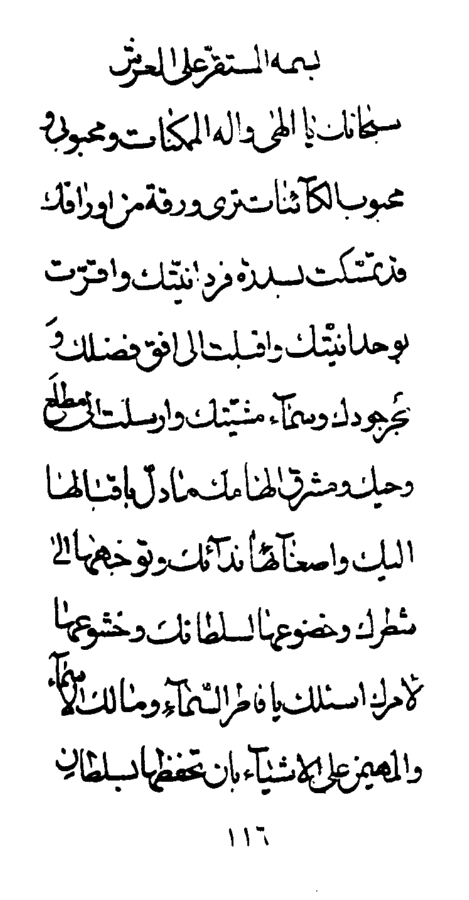 بسمه المستقرّ على العرش
سبحانك يا الهى واله الممكنات ومحبوبى و
محبوب الكآئنات ترى ورقة من اوراقك
قد تمسّكت بسدرة فردانيّتك واقرّت
بوحدانيّتك واقبلت الى افق فضلك و
بحر جودك وسمآء مشيّتك وارسلت الى مطلع
وحيك ومشرق الهامك ما دلّ باقبالها
اليك واصغآئها ندآئك وتوجّهها الى
شطرك وخضوعها لسلطانك وخشوعها
لامرك اسئلك يا فاطر السّمآء ومالك الاسمآء
والمهيمن على الاشيآء بان تحفظها بسلطان
١١٦